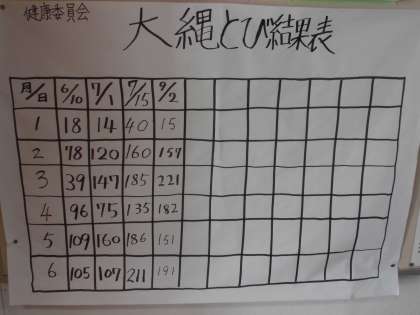 健康委員会
大縄とび結果表
月/日 6/10 7/1 7/15 9/2
1 18 14 40 15
2 78 120 160 157
3 39 147 185 221
4 96 75 135 182
5 109 160 186 151
6 105 107 211 191